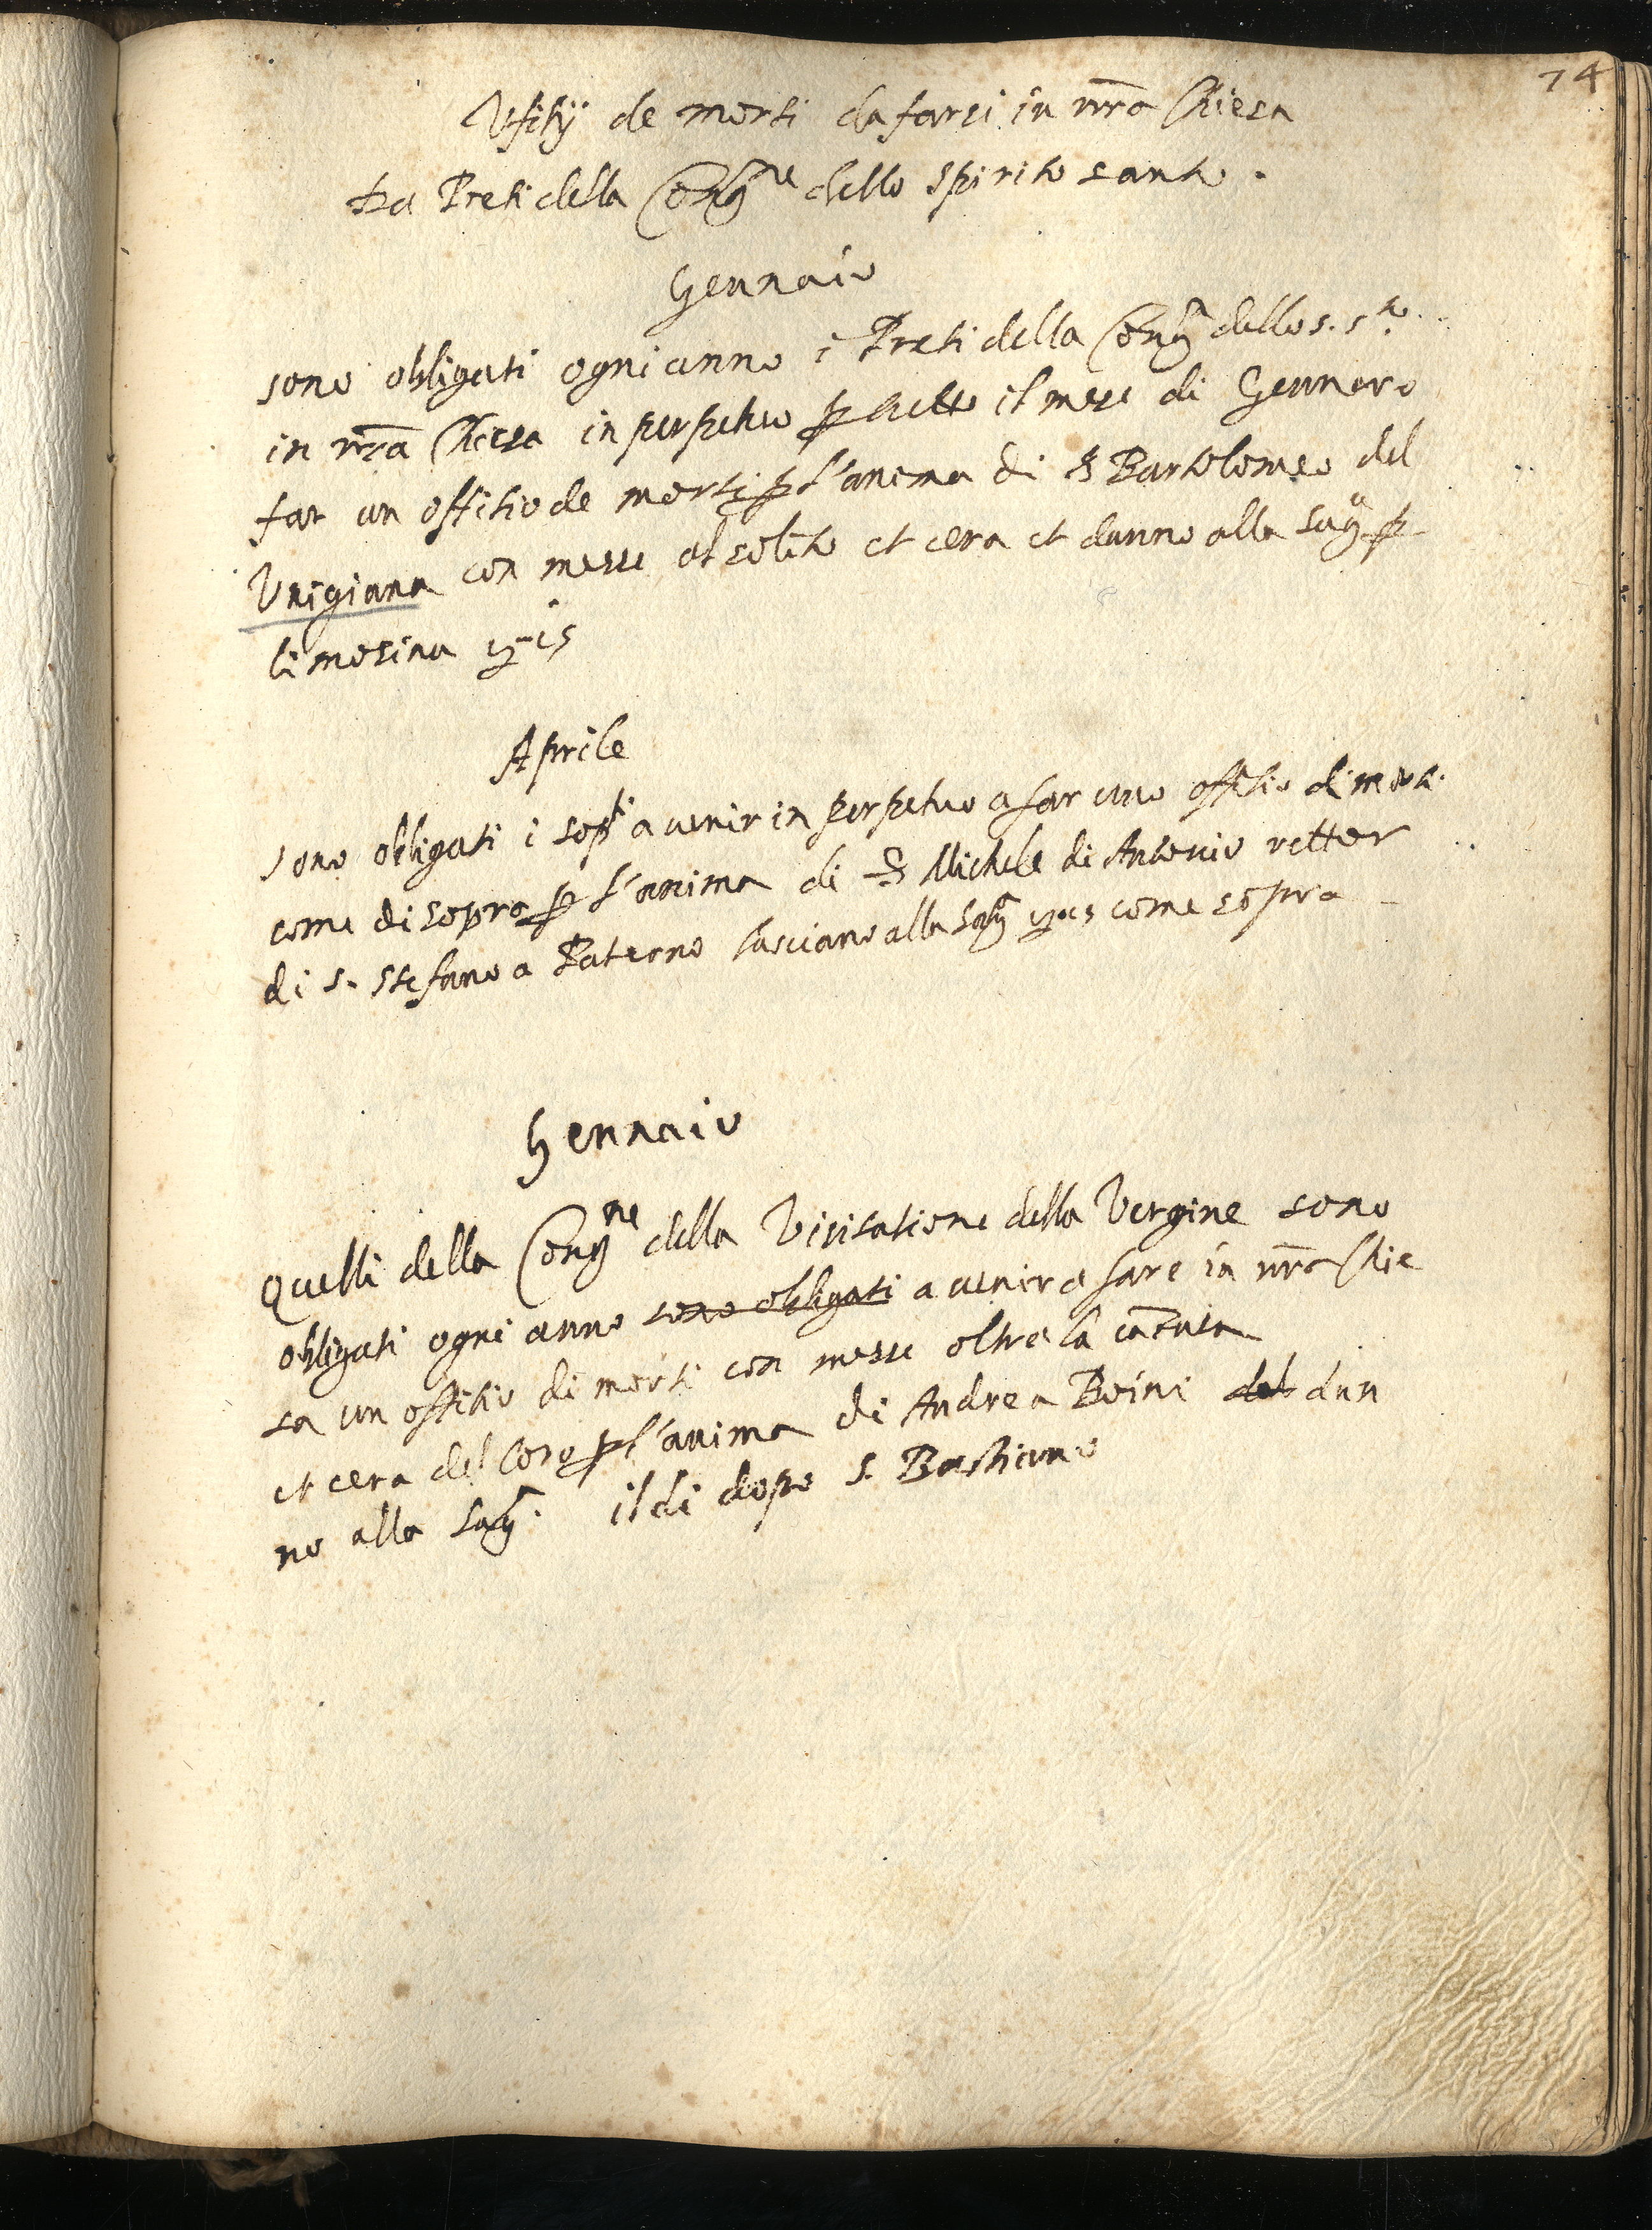 74
Ufitij de morti da farsi in nr̃a Chiesa
Da Preti della Cong.ne dello Spirito santo.
Gennaio
Sono obligati ogni anno i Preti della Cong dello s. s.to
in nr̃a Chiesa in perpetuo p tutto il mese di Gennaro
far un offitio de morti p l'anima di Bartolomeo del
Unigiana con messe al solito et cera et danno alla sag.a p
limosina
Aprile
Sono obligati i sop.ti a venir in perpetuo a far uno offitio di morti
come di sopra p l'anima di Michele di Antonio rettor
di S. Stefano a Paterno lasciano alla sag.a come sopra
Gennaio
Quelli della Cong.ne della Visitatione della Vergine sono
obligati ogni anno sono obligati a venir a fare in nr̃a Chie
sa un offitio di morti con messe oltre la cantata
et cera del loro p l'anima di Andrea Boini del dan
no alla sag. il di dopo S. Bastiano